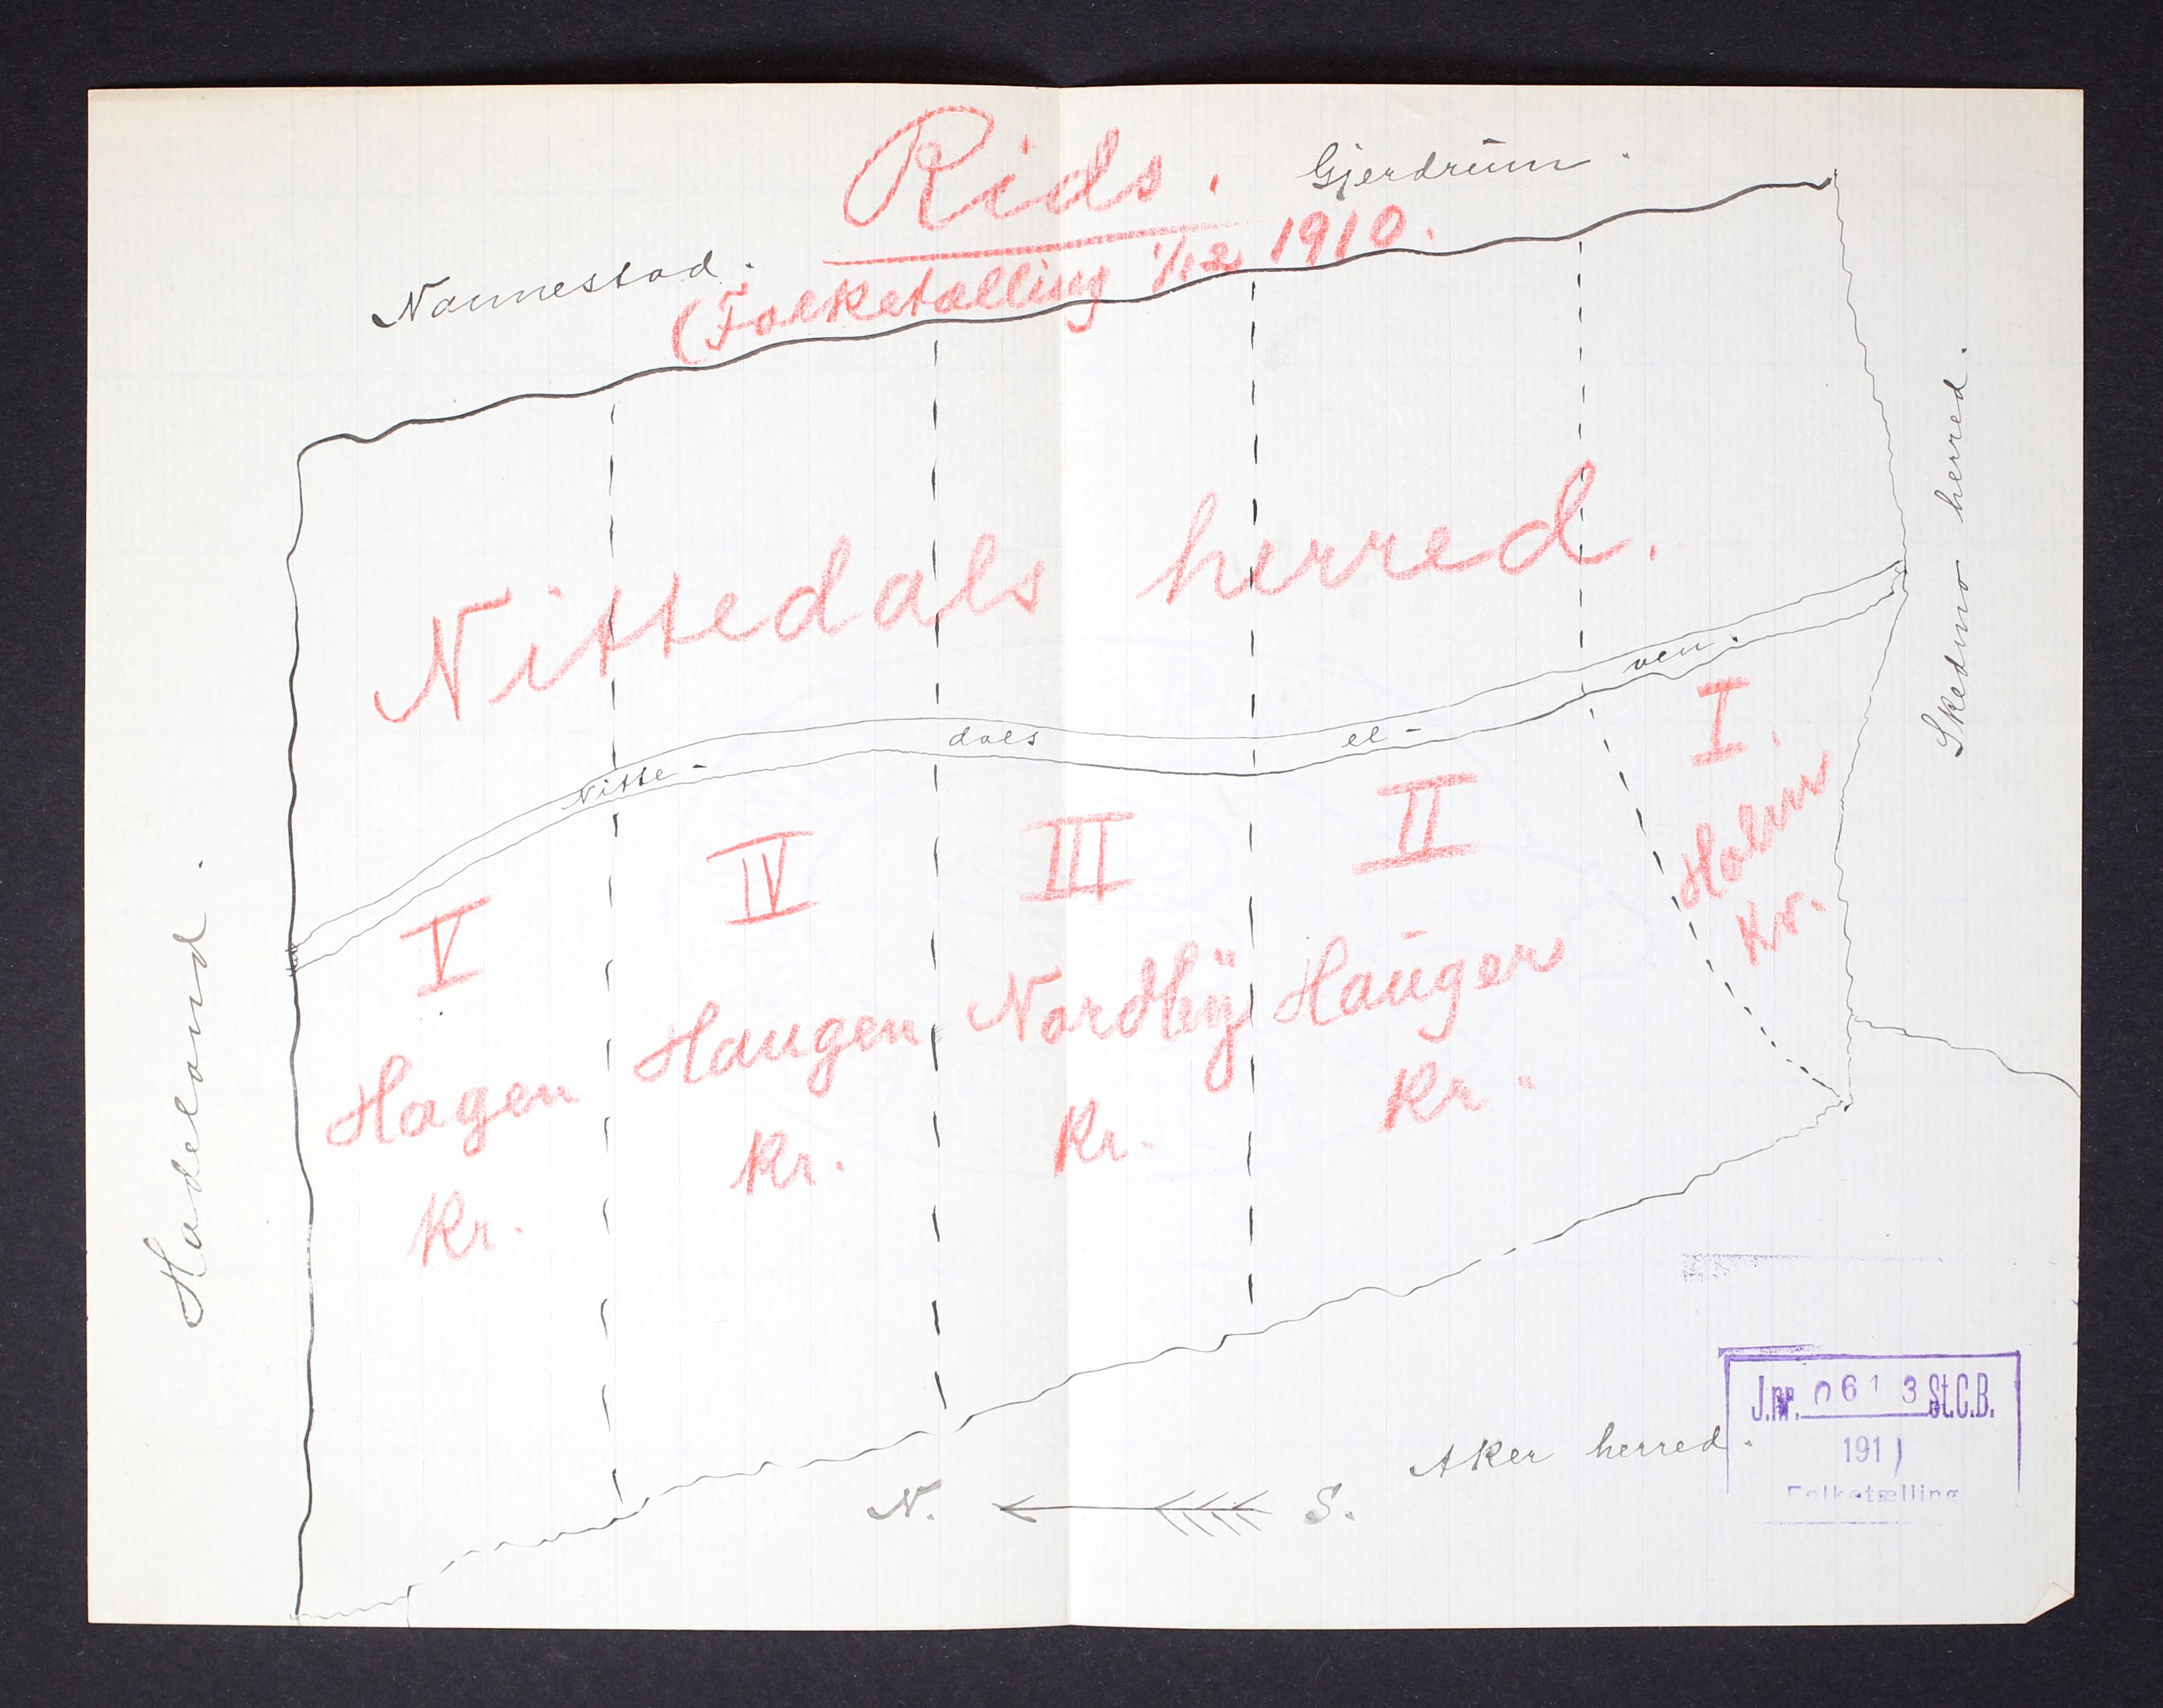 Rids.
(Folketælling 1/12 1910.
Gjerdrum.
Nannestad.
Skedsmo herred.
Nittedals herred.
Nitte-
dals
el-
ven.
I.
Holm
Kr.
II
Hauger
Kr.
III
Nordby
Kr.
IV
Haugen
Kr.
V
Hagen
Kr.
Hadeland.
Aker herred.
N.
S.
J.nr. 0613 St.C.B.
191)
Folketælling